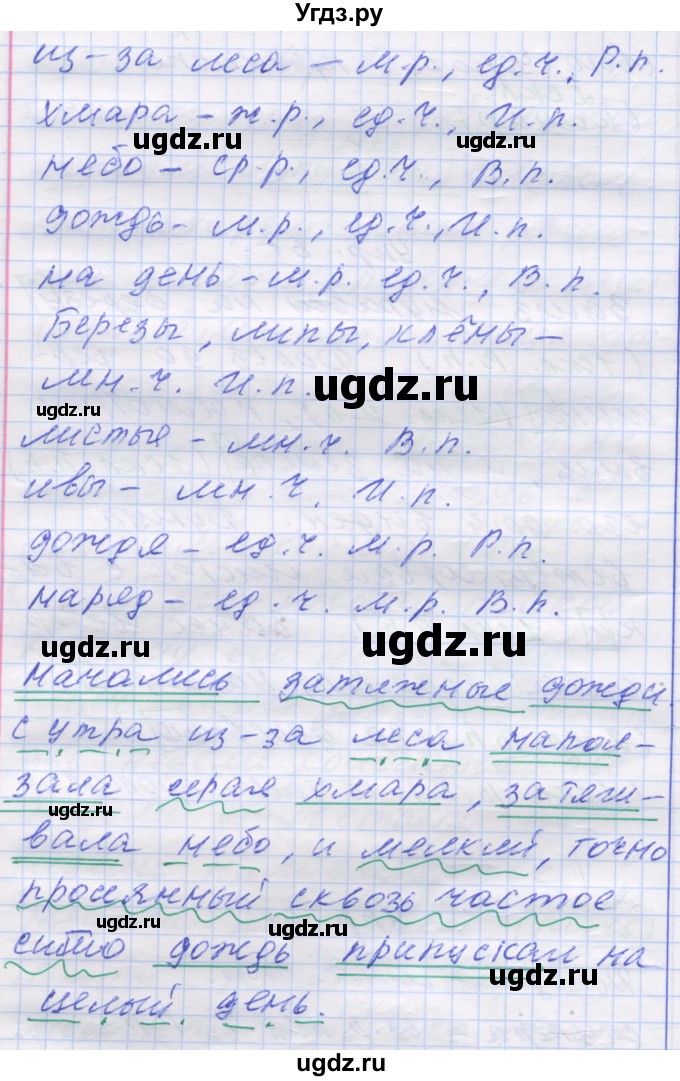 Угдз.ру
из-за леса – м.р., ед.ч., Р.п.
хмара – ж.р., ед.ч., И.п.
ugdz.ru ugdz.ru
небо – ср.р., ед.ч., В.п.
дождь – м.р., ед.ч., И.п.
на день – м.р. ед.ч., В.п.
Березы, липы, клёны –
мн.ч. И.п.
ugdz.ru
ugdz.ru
листья – мн.ч. В.п.
ивы – мн.ч. И.п.
дождя – ед.ч. м.р. Р.п.
наряд – ед.ч. м.р. В.п.
ugdz.ru ugdz.ru
Начались затяжные дожди
с утра из-за леса напол-
зала серая хмара, затяги-
ugdz.ru
вала небо, и мелкий, точно
просеянный сквозь частое
ugdz.ru
сито дождь припускал на
ugdz.ru
целый день.
ugdz.ru